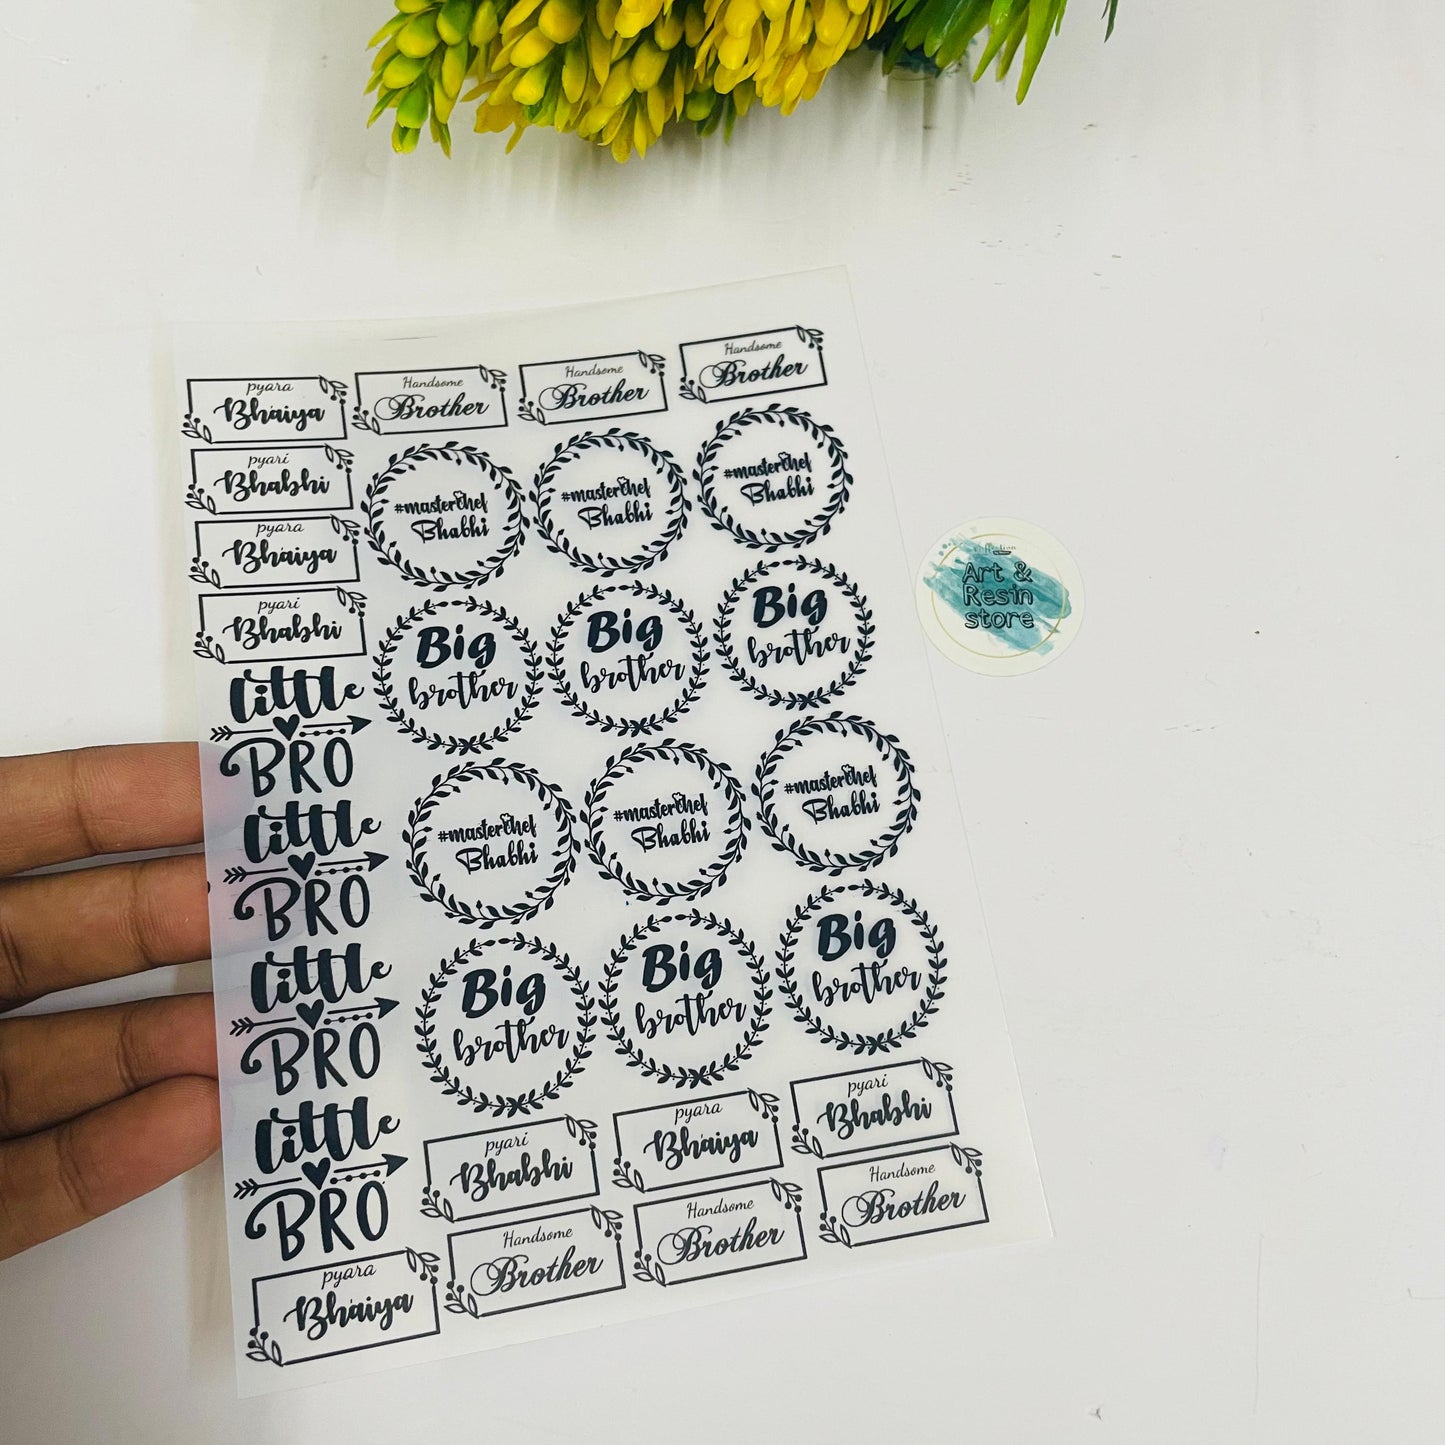 pyara
Bhaiya
Handsome
Brother
Handsome
Brother
Handsome
Brother
pyari
Bhabhi
#masterchef
Bhabhi
#masterchef
Bhabhi
#masterchef
Bhabhi
pyara
Bhaiya
pyari
Bhabhi
Big
brother
Big
brother
Big
brother
Art &
Resin
store
little
BRO
little
BRO
#masterchef
Bhabhi
#masterchef
Bhabhi
#masterchef
Bhabhi
little
BRO
Big
brother
Big
brother
Big
brother
little
BRO
pyari
Bhabhi
pyara
Bhaiya
pyari
Bhabhi
pyara
Bhaiya
Handsome
Brother
Handsome
Brother
Handsome
Brother